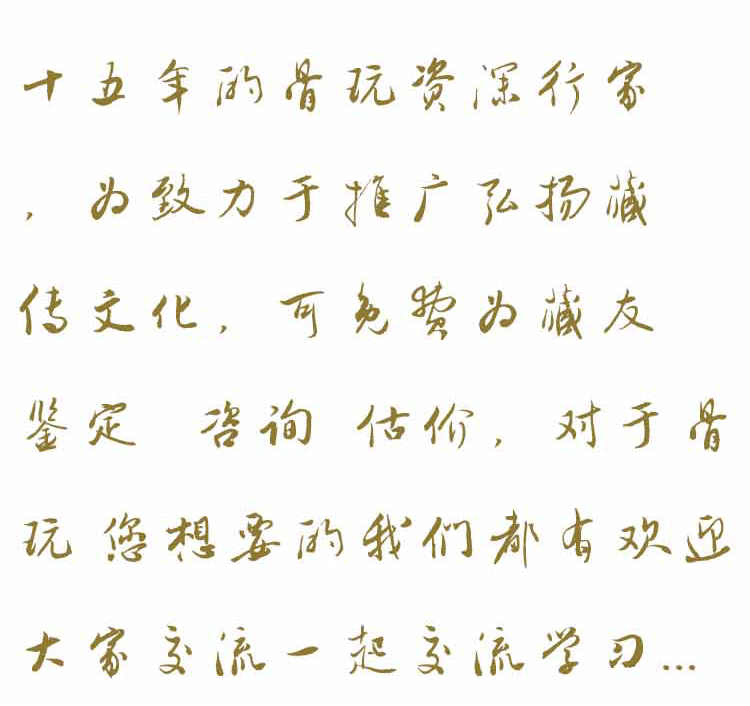 十五年的骨玩资深行家
，为致力于推广弘扬藏
传文化，可免费为藏友
鉴定 咨询 估价，对于骨
玩 您想要的我们都有欢迎
大家交流一起交流学习...